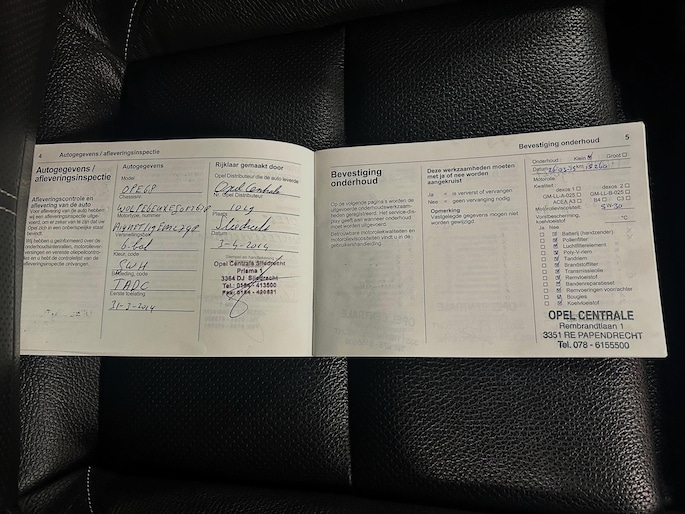 4 Autogegevens / afleveringsinspectie
Autogegevens /
afleveringsinspectie
Afleveringscontrole en
aflevering van de auto
Voor aflevering van de auto hebben
wij een afleveringsinspectie uitge-
voerd, om er zeker van te zijn dat uw
Opel zich in een onberispelijke staat
bevindt.
Wij hebben u geïnformeerd over de
Autogegevens
Model
Chassisnr.
Motortype, nummer
Kleur, code
GWH
Bekleding, code
TADC
Eerste toelating
31-3-2014
Rijklaar gemaakt door
Opel Distributeur die de auto leverde
Opel Centrale
Nr. Opel Distributeur
Plaats
Sliedrecht
Datum
3-4-2014
Opel Centrale Sliedrecht
Prisma 1
3364 DJ Sliedrecht
Tel.: 0184 - 413500
Bevestiging onderhoud 5
Bevestiging
onderhoud
Op de volgende pagina's worden de
uitgevoerde onderhoudswerkzaam-
heden geregistreerd. Het service-dis-
play geeft aan wanneer onderhoud
moet worden uitgevoerd.
Betrouwbare motoroliekwaliteiten en
motorolieviscositeiten vindt u in de
gebruikshandleiding.
Deze werkzaamheden moeten
met ja of nee worden
aangekruist
Ja = is ververst of vervangen
Nee = geen vervanging nodig
Opmerking
Vastgelegde gegevens mogen niet
worden gewijzigd.
Onderhoud: Klein Groot
Datum
Motorolie:
Kwaliteit
dexos 1 dexos 2
GM-LL-A-025 GM-LL-B-025
ACEA A3 B4 C3
Motorolieviscositeit:
5W-30
Vorstbescherming,
koelvloeistof °C
Ja Nee
Batterij (handzender)
Pollenfilter
Luchtfilterelement
Poly-V-riem
Tandriem
Brandstoffilter
Transmissieolie
Remvloeistof
Bandenreparatieset
Remvoeringen voor/achter
Bougies
Koelvloeistof
OPEL CENTRALE
Rembrandtlaan 1
3351 RE PAPENDRECHT
Tel. 078 - 6155500